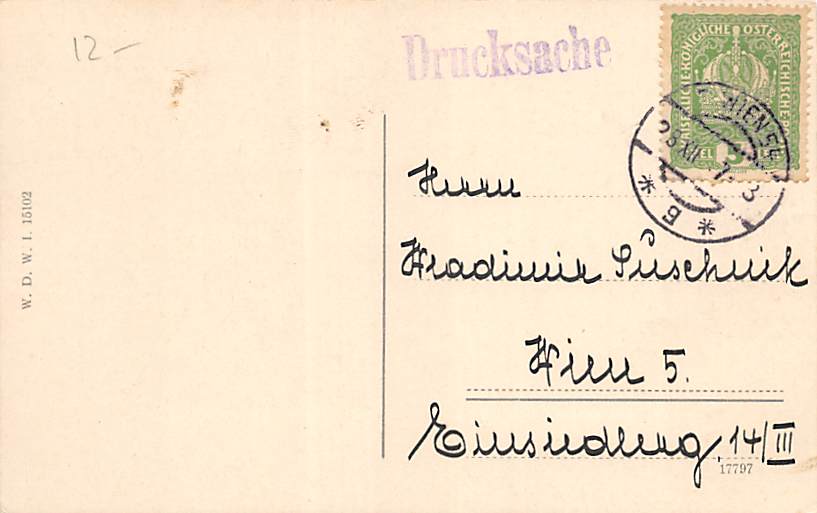 12 –
Drucksache
KAISERLICHE KÖNIGLICHE ÖSTERREICHISCHE
5
WIEN 54
W. D. W. I. 15102
Herrn
Wladimir Suschnik
Wien 5.
Einsiedlerg. 14/III
17797